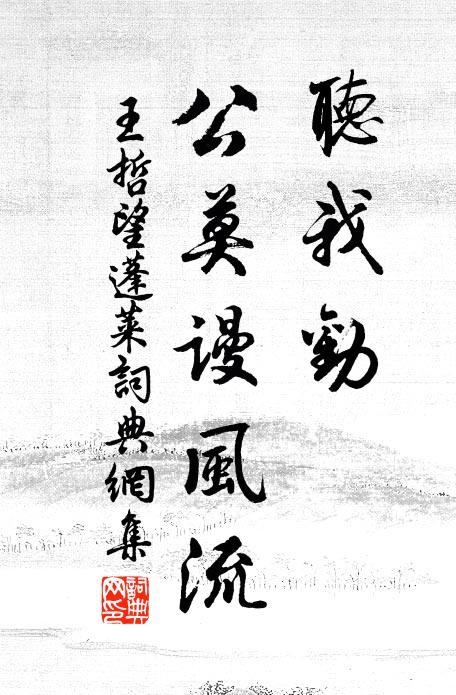 聽我勸
公莫謾風流
王哲望蓬萊詞典網集
詞典網印